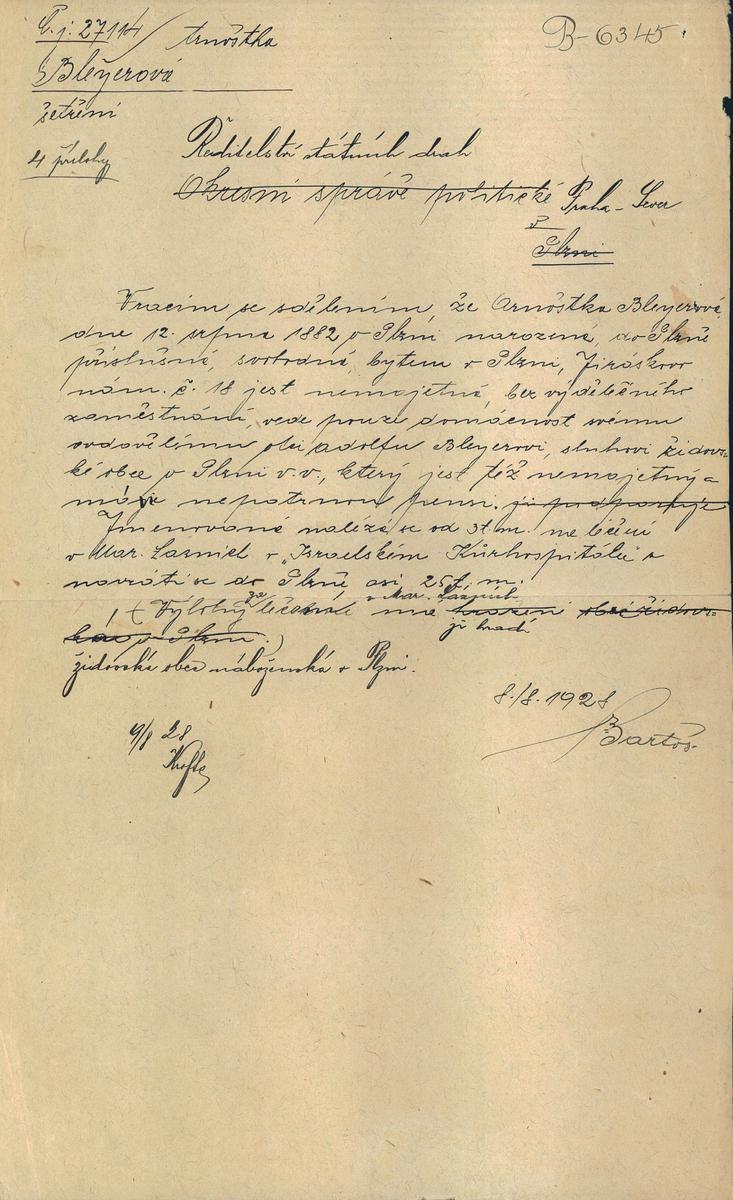 Č.j: 27114/ Arnoštka
B-6345
Bleyerová
šetření
4 přílohy
Ředitelství státních drah
Okresní správě politické Praha-Sever
v
Plzni
Vracím se sdělením, že Arnoštka Bleyerová,
dne 12. srpna 1882 v Plzni narozená, do Plzně
příslušná, svobodná, bytem v Plzni, Jiráskovo
nám. č. 18 jest nemajetná, bez výdělečného
zaměstnání, vede pouze domácnost svému
ovdovělému otci Adolfu Bleyerovi, sluhovi židovs-
ké obce v Plzni v.v., který jest též nemajetný a
má nepatrnou pensi. ji podporuje
Jmenovaná nalézá se od 3t.m. na léčení
v Mar. Lázních v „Israelském Kurhospitálu" a
navrátí se do Plzně asi 25 t.m.
(Výlohy za léčení v Mar. Lázních má hrazeni obcí židov-
skou v Plzni.)
jí hradí
židovská obec náboženská v Plzni.
8./8. 1928
Bartoš
9/8 28